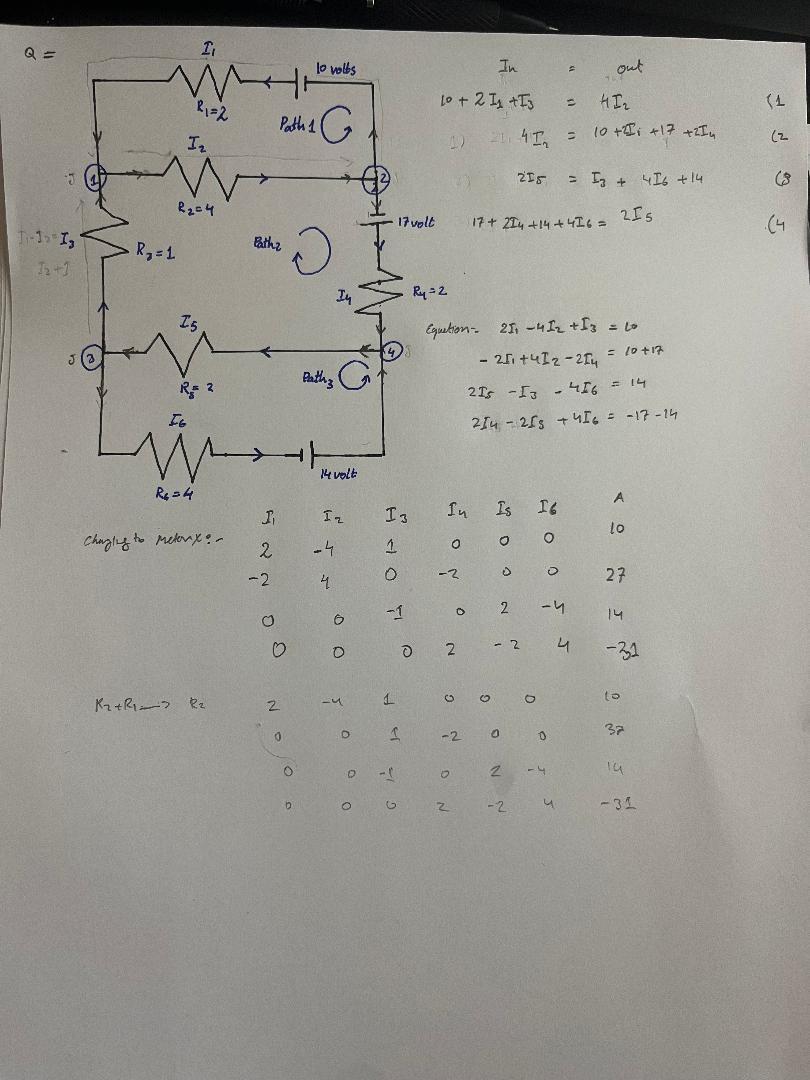 Q =
I₁
10 volts
R₁=2
Path1
I₂
J
1
2
R₂=4
17volt
I₁-I₂= I₃
I₂+I
R₃=1
Path2
I₄
R₄=2
I₅
J 3
4 J
R₅= 2
Path3
I₆
14 volt
R₆=4
In = out
10 + 2I₁ + I₃ = 4I₂ (1
1) 4I₂ = 10 + 2I₁ + 17 + 2I₄ (2
2I₅ = I₃ + 4I₆ + 14 (3
17 + 2I₄ + 14 + 4I₆ = 2I₅ (4
Equation:-
2I₁ - 4I₂ + I₃ = 10
- 2I₁ + 4I₂ - 2I₄ = 10 + 17
2I₅ - I₃ - 4I₆ = 14
2I₄ - 2I₅ + 4I₆ = -17 -14
I₁ I₂ I₃ I₄ I₅ I6 A
Changing to Metorx:-
2 -4 1 0 0 0 10
-2 4 0 -2 0 0 27
0 0 -1 0 2 -4 14
0 0 0 2 -2 4 -31
R₂+R₁ → R₂
2 -4 1 0 0 0 10
0 0 1 -2 0 0 37
0 0 -1 0 2 -4 14
0 0 0 2 -2 4 -31